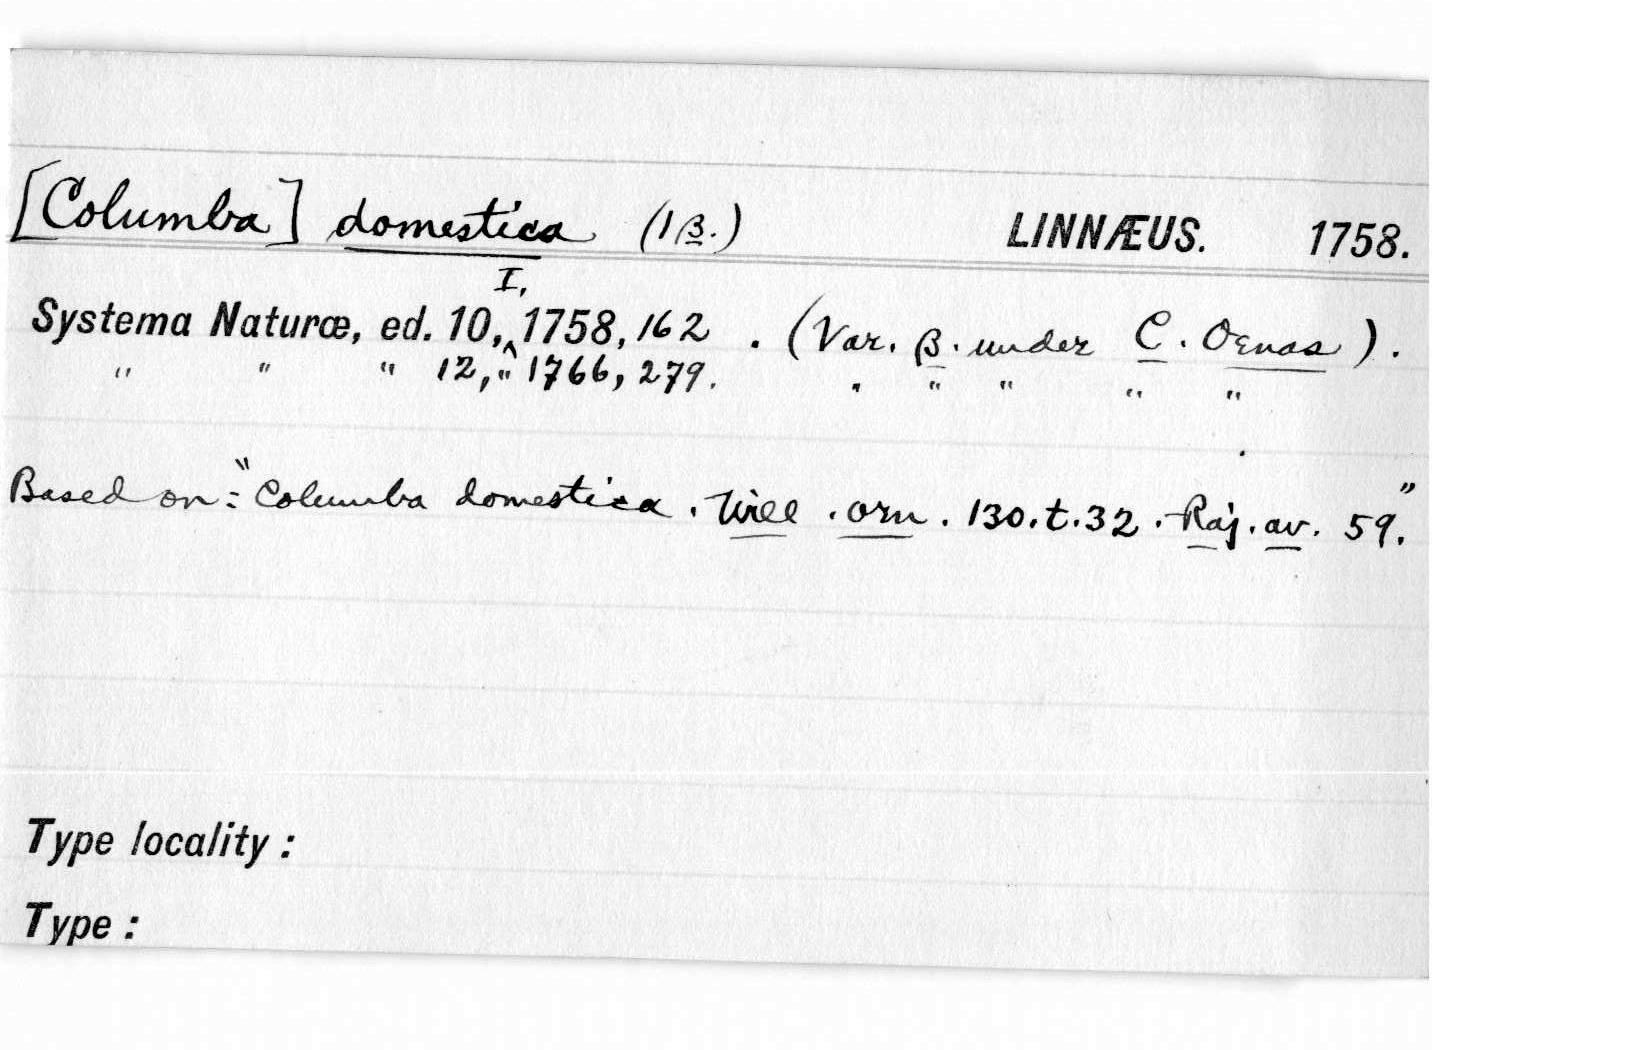 [Columba] domestica (1β.) LINNÆUS. 1758.
I,
Systema Naturæ, ed. 10,‸1758, 162 . (Var. β. under C. Oenas).
" " " 12, " 1766, 279. " " " " "
Based on: "Columba domestica. Will. orn. 130. t. 32. Raj. av. 59."
Type locality:
Type: